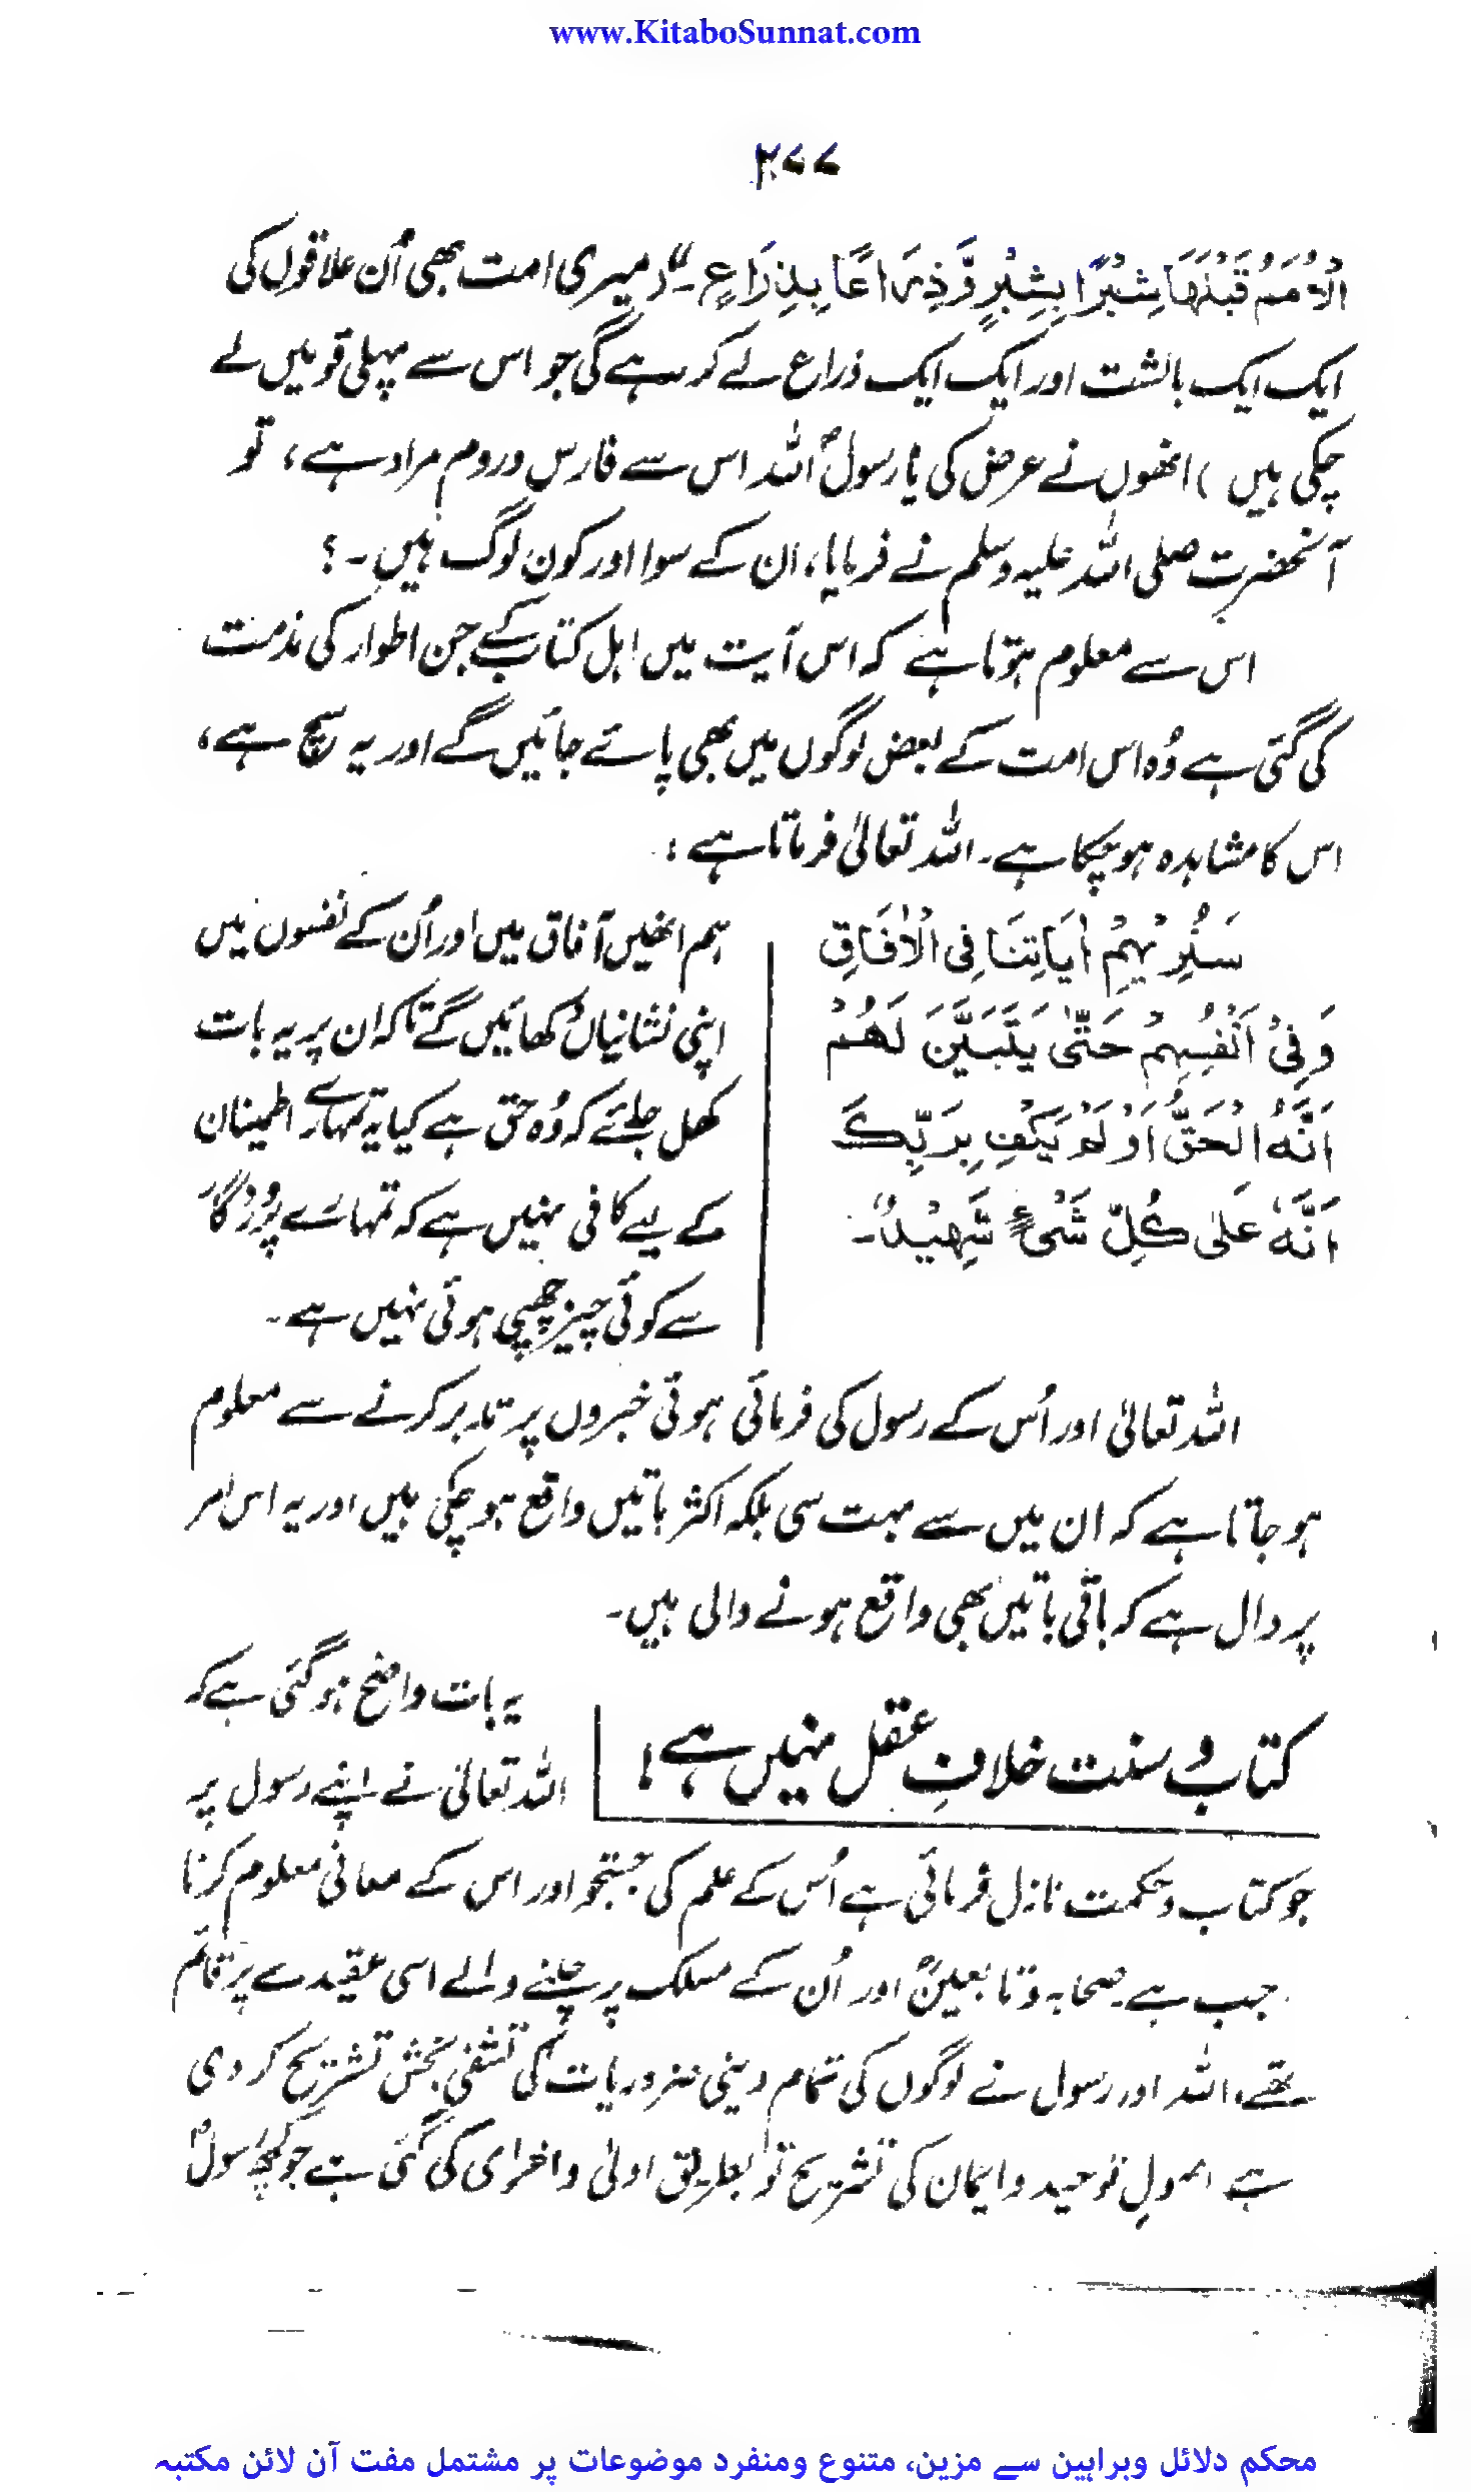 www.KitaboSunnat.com
۲۷۷
الْأُمَمُ قَبْلَهَا شِبْرًا بِشِبْرٍ وَّذِرَاعًا بِذِرَاعٍ۔“ (میری امت بھی اُن علاقوں کی
ایک ایک بالشت اور ایک ایک ذراع لے کر رہے گی جو اس سے پہلی قومیں لے
چکی ہیں ) انھوں نے عرض کی یا رسولؐ اللہ اس سے فارس و روم مراد ہے، تو
آنحضرت صلی اللہ علیہ وسلم نے فرمایا، ان کے سوا اور کون لوگ ہیں۔؟
اس سے معلوم ہوتا ہے کہ اس آیت میں اہل کتاب کے جن اطوار کی مذمت
کی گئی ہے وُہ اس امت کے بعض لوگوں میں بھی پائے جائیں گے اور یہ سچ ہے،
اس کا مشاہدہ ہو چکا ہے۔ اللہ تعالیٰ فرماتا ہے :
سَنُرِيْهِمْ اٰيَاتِنَا فِى الْاٰفَاقِ
وَفِىْ اَنْفُسِهِمْ حَتّٰى يَتَبَيَّنَ لَهُمْ
اَنَّهُ الْحَقُّ اَوَلَمْ يَكْفِ بِرَبِّكَ
اَنَّهٗ عَلٰى كُلِّ شَىْءٍ شَهِيْدٌ۔
ہم انھیں آفاق میں اور اُن کے نفسوں میں
اپنی نشانیاں دکھائیں گے تاکہ ان پر یہ بات
کھل جائے کہ وُہ حق ہے کیا یہ تمہارے اطمینان
کے لیے کافی نہیں ہے کہ تمہارے پروردگار
سے کوئی چیز چھپی ہوئی نہیں ہے۔
اللہ تعالیٰ اور اُس کے رسول کی فرمائی ہوئی خبروں پر تدبر کرنے سے معلوم
ہو جاتا ہے کہ ان میں سے بہت سی بلکہ اکثر باتیں واقع ہو چکی ہیں اور یہ اس امر
پر دال ہے کہ باقی باتیں بھی واقع ہونے والی ہیں۔
کتاب و سنت خلافِ عقل نہیں ہے!
یہ بات واضح ہو گئی ہے کہ
اللہ تعالیٰ نے اپنے رسول پر
جو کتاب و حکمت نازل فرمائی ہے اُس کے علم کی جستجو اور اس کے معانی معلوم کرنا
جب ہے۔ صحابہ و تابعینؒ اور اُن کے مسلک پر چلنے والے اسی عقیدے پر قائم
تھے، اللہ اور رسول نے لوگوں کی تمام دینی ضروریات کی تشفی بخش تشریح کر دی
ہے اصولِ توحید و ایمان کی تشریح تو بطریق اولیٰ و احریٰ کی گئی ہے جو کچھ رسولؐ
محکم دلائل وبراہین سے مزین، متنوع ومنفرد موضوعات پر مشتمل مفت آن لائن مکتبہ